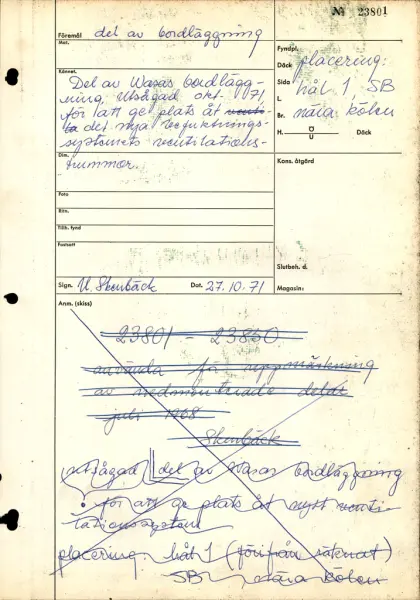 № 23801
Föremål del av bordläggning
Mat.
Fyndpl.
Däck placering:
Sida hål 1, SB
L.
Br. nära kölen
H. Ö U Däck
Kännet.
Del av Wasas bordlägg-
ning, utsågad okt. 1971
för att ge plats åt venti-
la det nya befuktnings-
systemets ventilations-
Dim.
trummor.
Kons. åtgärd
Foto
Ritn.
Tillh. fynd
Fotsatt
Slutbeh. d.
Sign. U. Skenbäck Dat. 27.10.71
Magasin:
Anm. (skiss)
23801 - 23850
använda för uppmärkning
av nedmonterade delar
juli 1968
Skenbäck
utsågad del av Wasas bordläggning
för att ge plats åt nytt venti-
lationssystem
placering hål 1 (förifrån räknat)
SB nära kölen